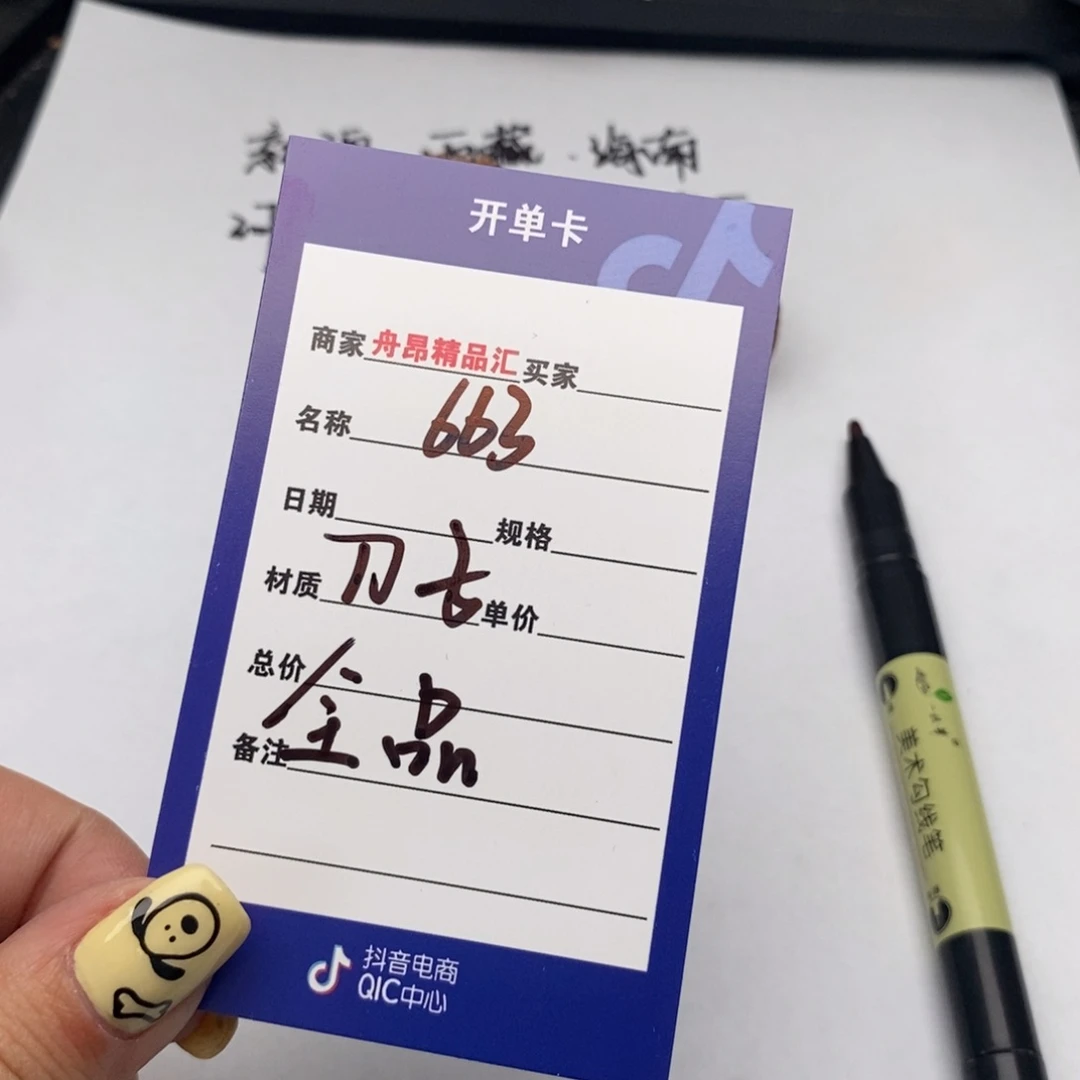 西藏.海南
开单卡
商家 舟昂精品汇 买家
名称 663
日期 规格
材质 刀七 单价
总价
全品
备注
抖音电商
QIC中心
美术勾线笔